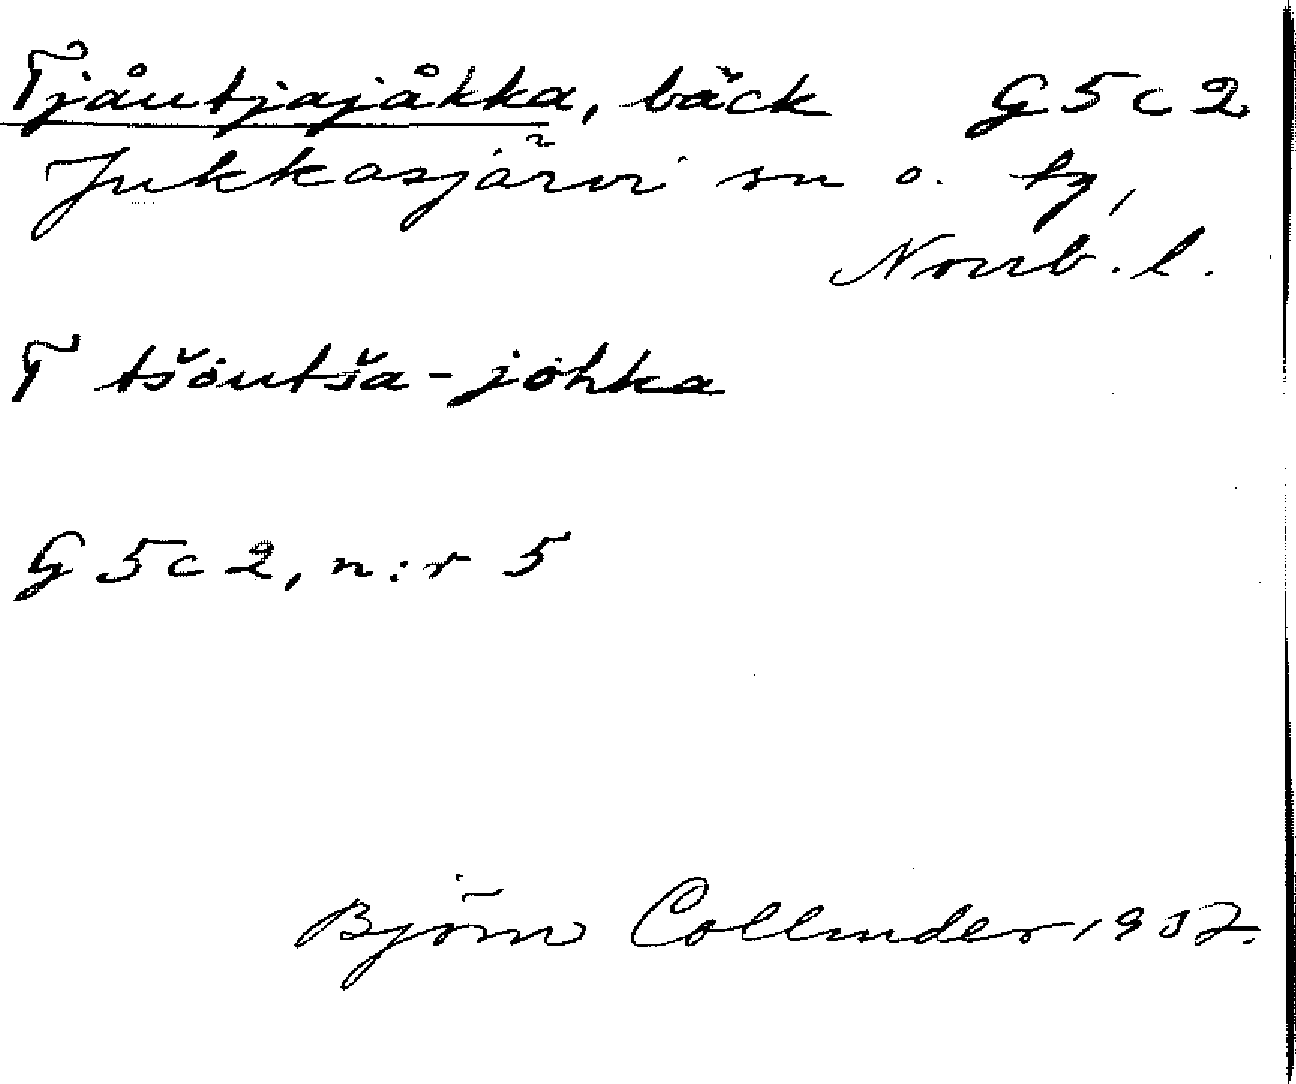 Tjåutjajåkka, bäck G5c2
Jukkasjärvi sn o. tg,
Norrb. l.
T tšoutša-johka
G5c2, n:r 5
Björn Collinder 1957.